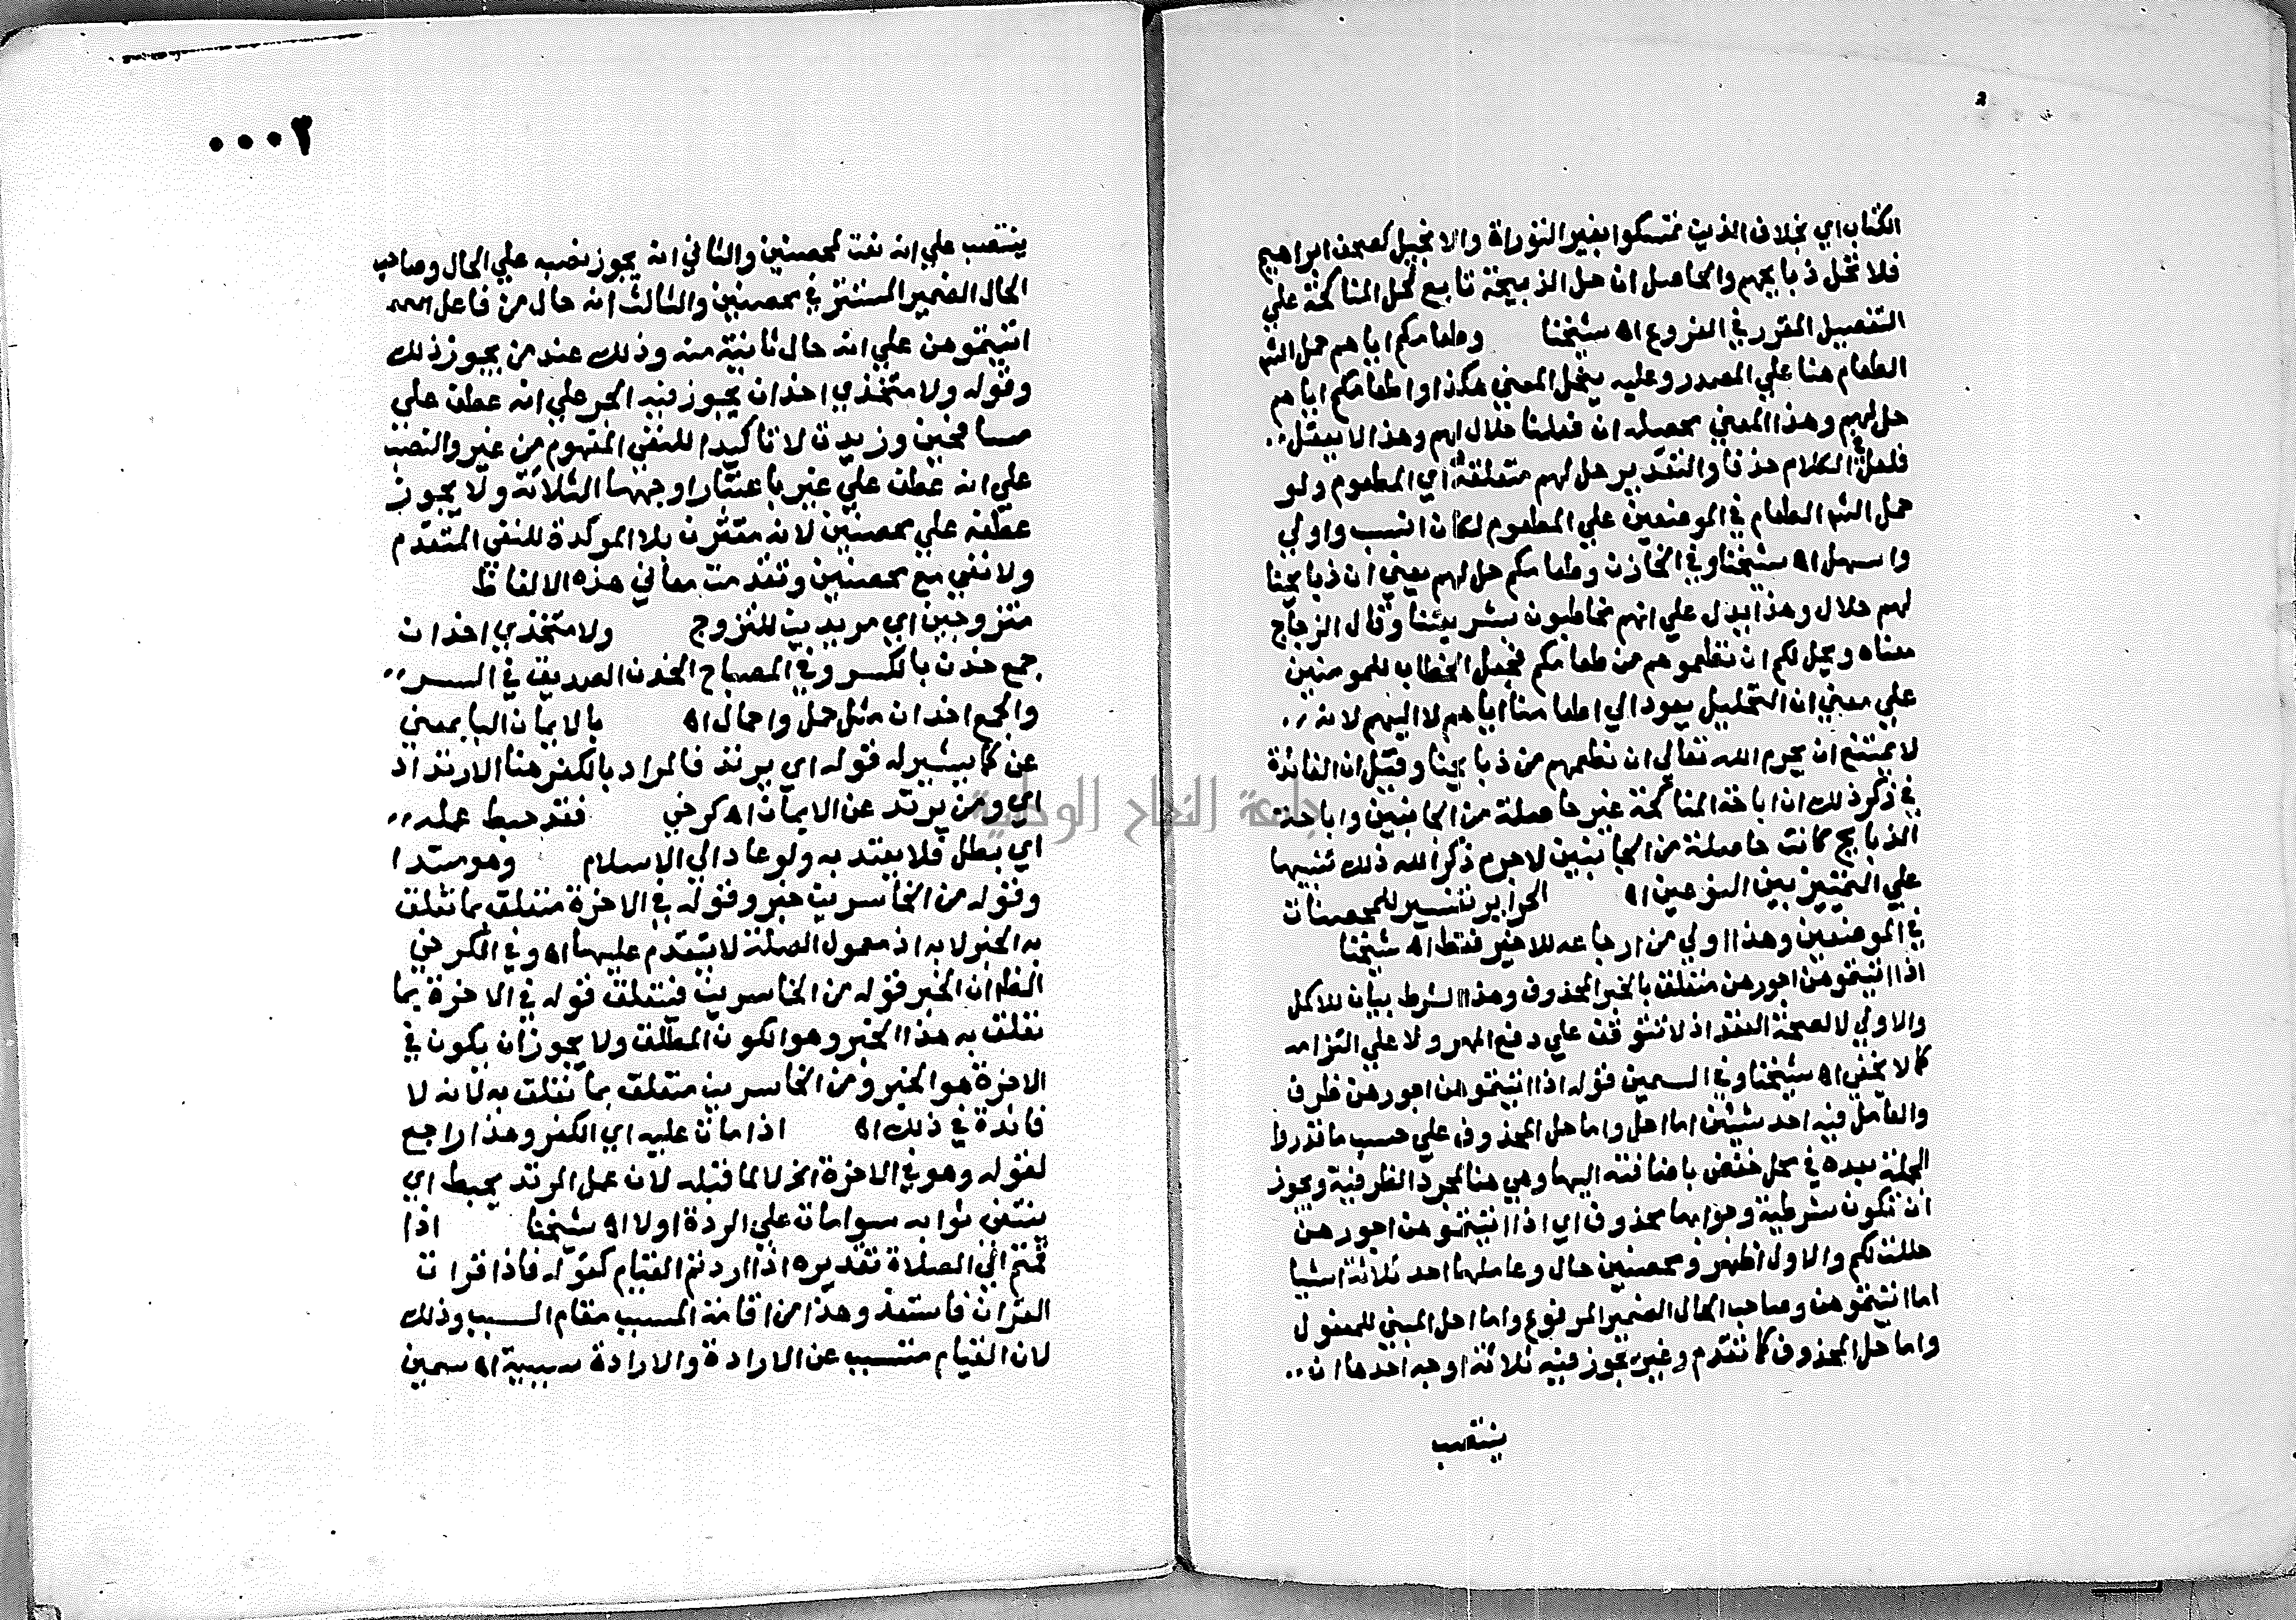 الكتاب اي بخلاف الذين تمسكوا بغير التوراة والانجيل كصحف ابراهيم
فلا تحل ذبايحهم والحاصل ان حل الذبيحة تابع لحل المناكحة علي
التفصيل المقرر في الفروع اه شيخنا وطعامكم اياهم حمل الشم
الطعام هنا علي المصدر وعليه ينحل المعني هكذا واطعامكم اياهم
حل لهم وهذا المعني محصله ان فعلنا حلال لهم وهذا لا يعقل
فلعل في الكلام حذفا والتقدير حل لهم متعلقه اي المطعوم ولو
حمل الشم الطعام في الموضعين علي المطعوم لكان انسب واولي
واسهل اه شيخنا وفي الخازن وطعامكم حل لهم يعني ان ذبايحنا
لهم حلال وهذا يدل علي انهم مخاطبون بشريعتنا وقال الزجاج
معناه ويحل لكم ان تطعموهم من طعامكم فجعل الخطاب للمومنين
علي معني ان التحليل يعود الي اطعامنا اياهم لا اليهم لانه
لا يمتنع ان يحرم الله تعالي ان نطعمهم من ذبايحنا وقيل ان الفائدة
في ذكر ذلك ان اباحة المناكحة غير حاصلة من الجانبين واباحة
الذبايح كانت حاصلة من الجانبين لاجرم ذكر الله ذلك تنبيها
علي التمييز بين النوعين اه الحراير تفسير للمحصنات
في الموضعين وهذا اولي من ارجاعه للاخير فقط اه شيخنا
اذا اتيتموهن اجورهن متعلق بالخبر المحذوف وهذا الشرط بيان للاكمل
والاولي لا لصحة العقد اذ لا تتوقف علي دفع المهر ولا علي التزامه
كما لا يخفي اه شيخنا وفي السمين قوله اذا اتيتموهن اجورهن ظرف
والعامل فيه احد شيئين اما احل واما حل المحذوف علي حسب ما قدروا
الجملة بعده في محل خفض باضافته اليها وهي هنا لمجرد الظرفية ويجوز
ان تكون شرطية وجوابها محذوف اي اذا اتيتموهن اجورهن
حللن لكم والاول اظهر ومحصنين حال وعاملها احد ثلاثة اشيا
اما اتيتموهن وصاحب الحال الضمير المرفوع واما احل المبني للمفعول
واما حل المحذوف كما تقدم وغير يجوز فيه ثلاثة اوجه احدها ان
ينتصب
٠٠٠٣
ينتصب علي انه نعت لمحصنين والثاني انه يجوز نصبه علي الحال وصاحب
الحال الضمير المستتر في محصنين والثالث انه حال من فاعل
اتيتموهن علي انه حال ثانية منه وذلك عند من يجوز ذلك
وقوله ولا متخذي اخدان يجوز فيه الجر علي انه عطف علي
مسافحين وزيدت لا تاكيدا للنفي المفهوم من غير والنصب
علي انه عطف علي غير باعتبار اوجهها الثلاثة ولا يجوز
عطفه علي محصنين لانه مقترن بلا الموكدة للنفي المتقدم
ولا نفي مع محصنين وتقدمت معاني هذه الالفاظ
متزوجين اي مريدين للتزوج ولا متخذي اخدان
جمع خدن بالكسر وفي المصباح الخدن الصديق في السر
والجمع اخدان مثل حمل واحمال اه بالايمان البا بمعني
عن كما يشير له قوله اي يرتد فالمراد بالكفر هنا الارتداد
اي ومن يرتد عن الايمان اه كرخي فقد حبط عمله
اي بطل فلا يعتد به ولو عاد الي الاسلام وهو مبتدا
وقوله من الخاسرين خبر وقوله في الاخرة متعلق بما تعلق
به الخبر لا به اذ معمول الصلة لا يتقدم عليها اه وفي الكرخي
الظم ان الخبر قوله من الخاسرين فيتعلق قوله في الاخرة بما
تعلق به هذا الخبر وهو الكون المطلق ولا يجوز ان يكون في
الاخرة هو الخبر ومن الخاسرين متعلق بما تعلق به لانه لا
فائدة في ذلك اه اذا مات عليه اي الكفر وهذا راجع
لقوله وهو في الاخرة الخ لا لما قبله لان عمل المرتد يحبط اي
ينتفي ثوابه سوا مات علي الردة اولا اه شيخنا اذا
قمتم الي الصلاة تقديره اذا اردتم القيام كقوله فاذا قرات
القران فاستعذ وهذا من اقامة المسبب مقام السبب وذلك
لان القيام متسبب عن الارادة والارادة سببية اه سمين
جامعة النجاح الوطنية